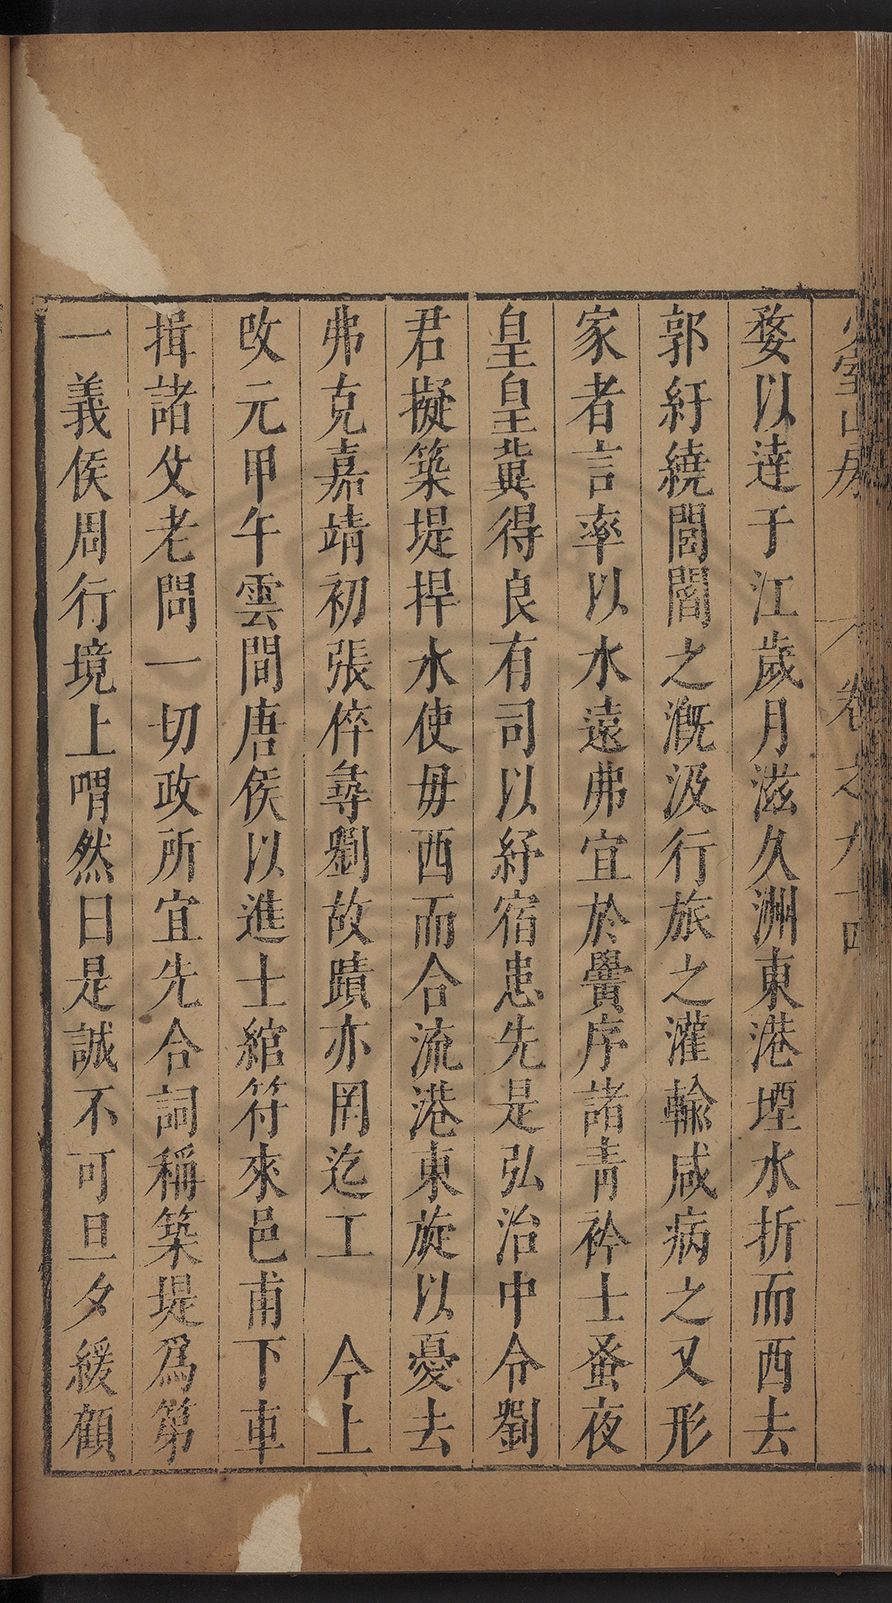 少室山房 卷之九十四 一
婺以達于江歲月滋久洲東港堙水折而西去
郭紆繞閭閻之漑汲行旅之灌輸咸病之又形
家者言率以水遠弗宜於黌序諸青衿士蚤夜
皇皇冀得良有司以紓宿患先是弘治中令劉
君擬築堤捍水使毋西而合流港東旋以憂去
弗克嘉靖初張倅尋劉故蹟亦罔迄工 今上
改元甲午雲間唐侯以進士綰符來邑甫下車
揖諸父老問一切政所宜先合詞稱築堤爲第
一義侯周行境上喟然曰是誠不可旦夕緩顧